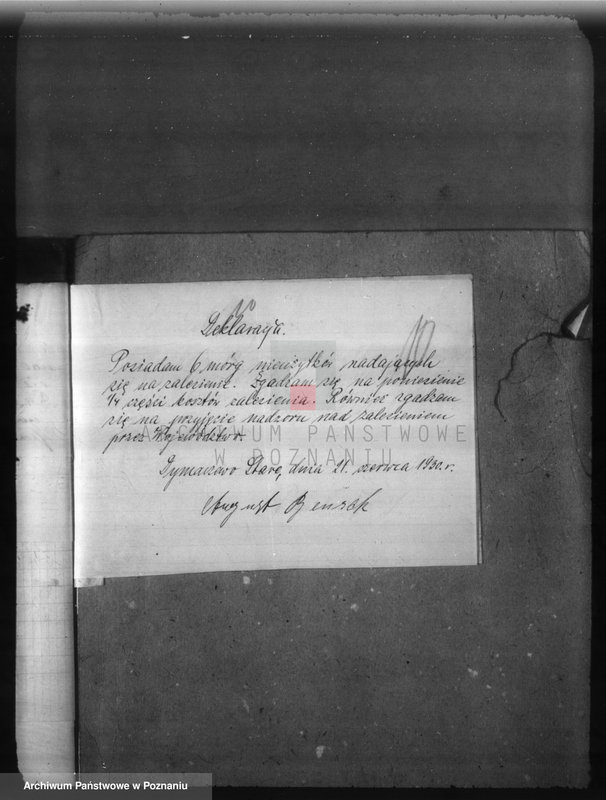 Deklaracja.
Posiadam 6 mórg nieużytków nadających
się na zalesienie. Zgadzam się na poniesienie
1/4 części kosztów zalesienia. Również zgadzam
się na przyjęcie nadzoru nad zalesieniem
przez Województwo.
ARCHIWUM PAŃSTWOWE
W POZNANIU
Tymaszewo Stare, dnia 21. czerwca 1930. r.
August
Archiwum Państwowe w Poznaniu